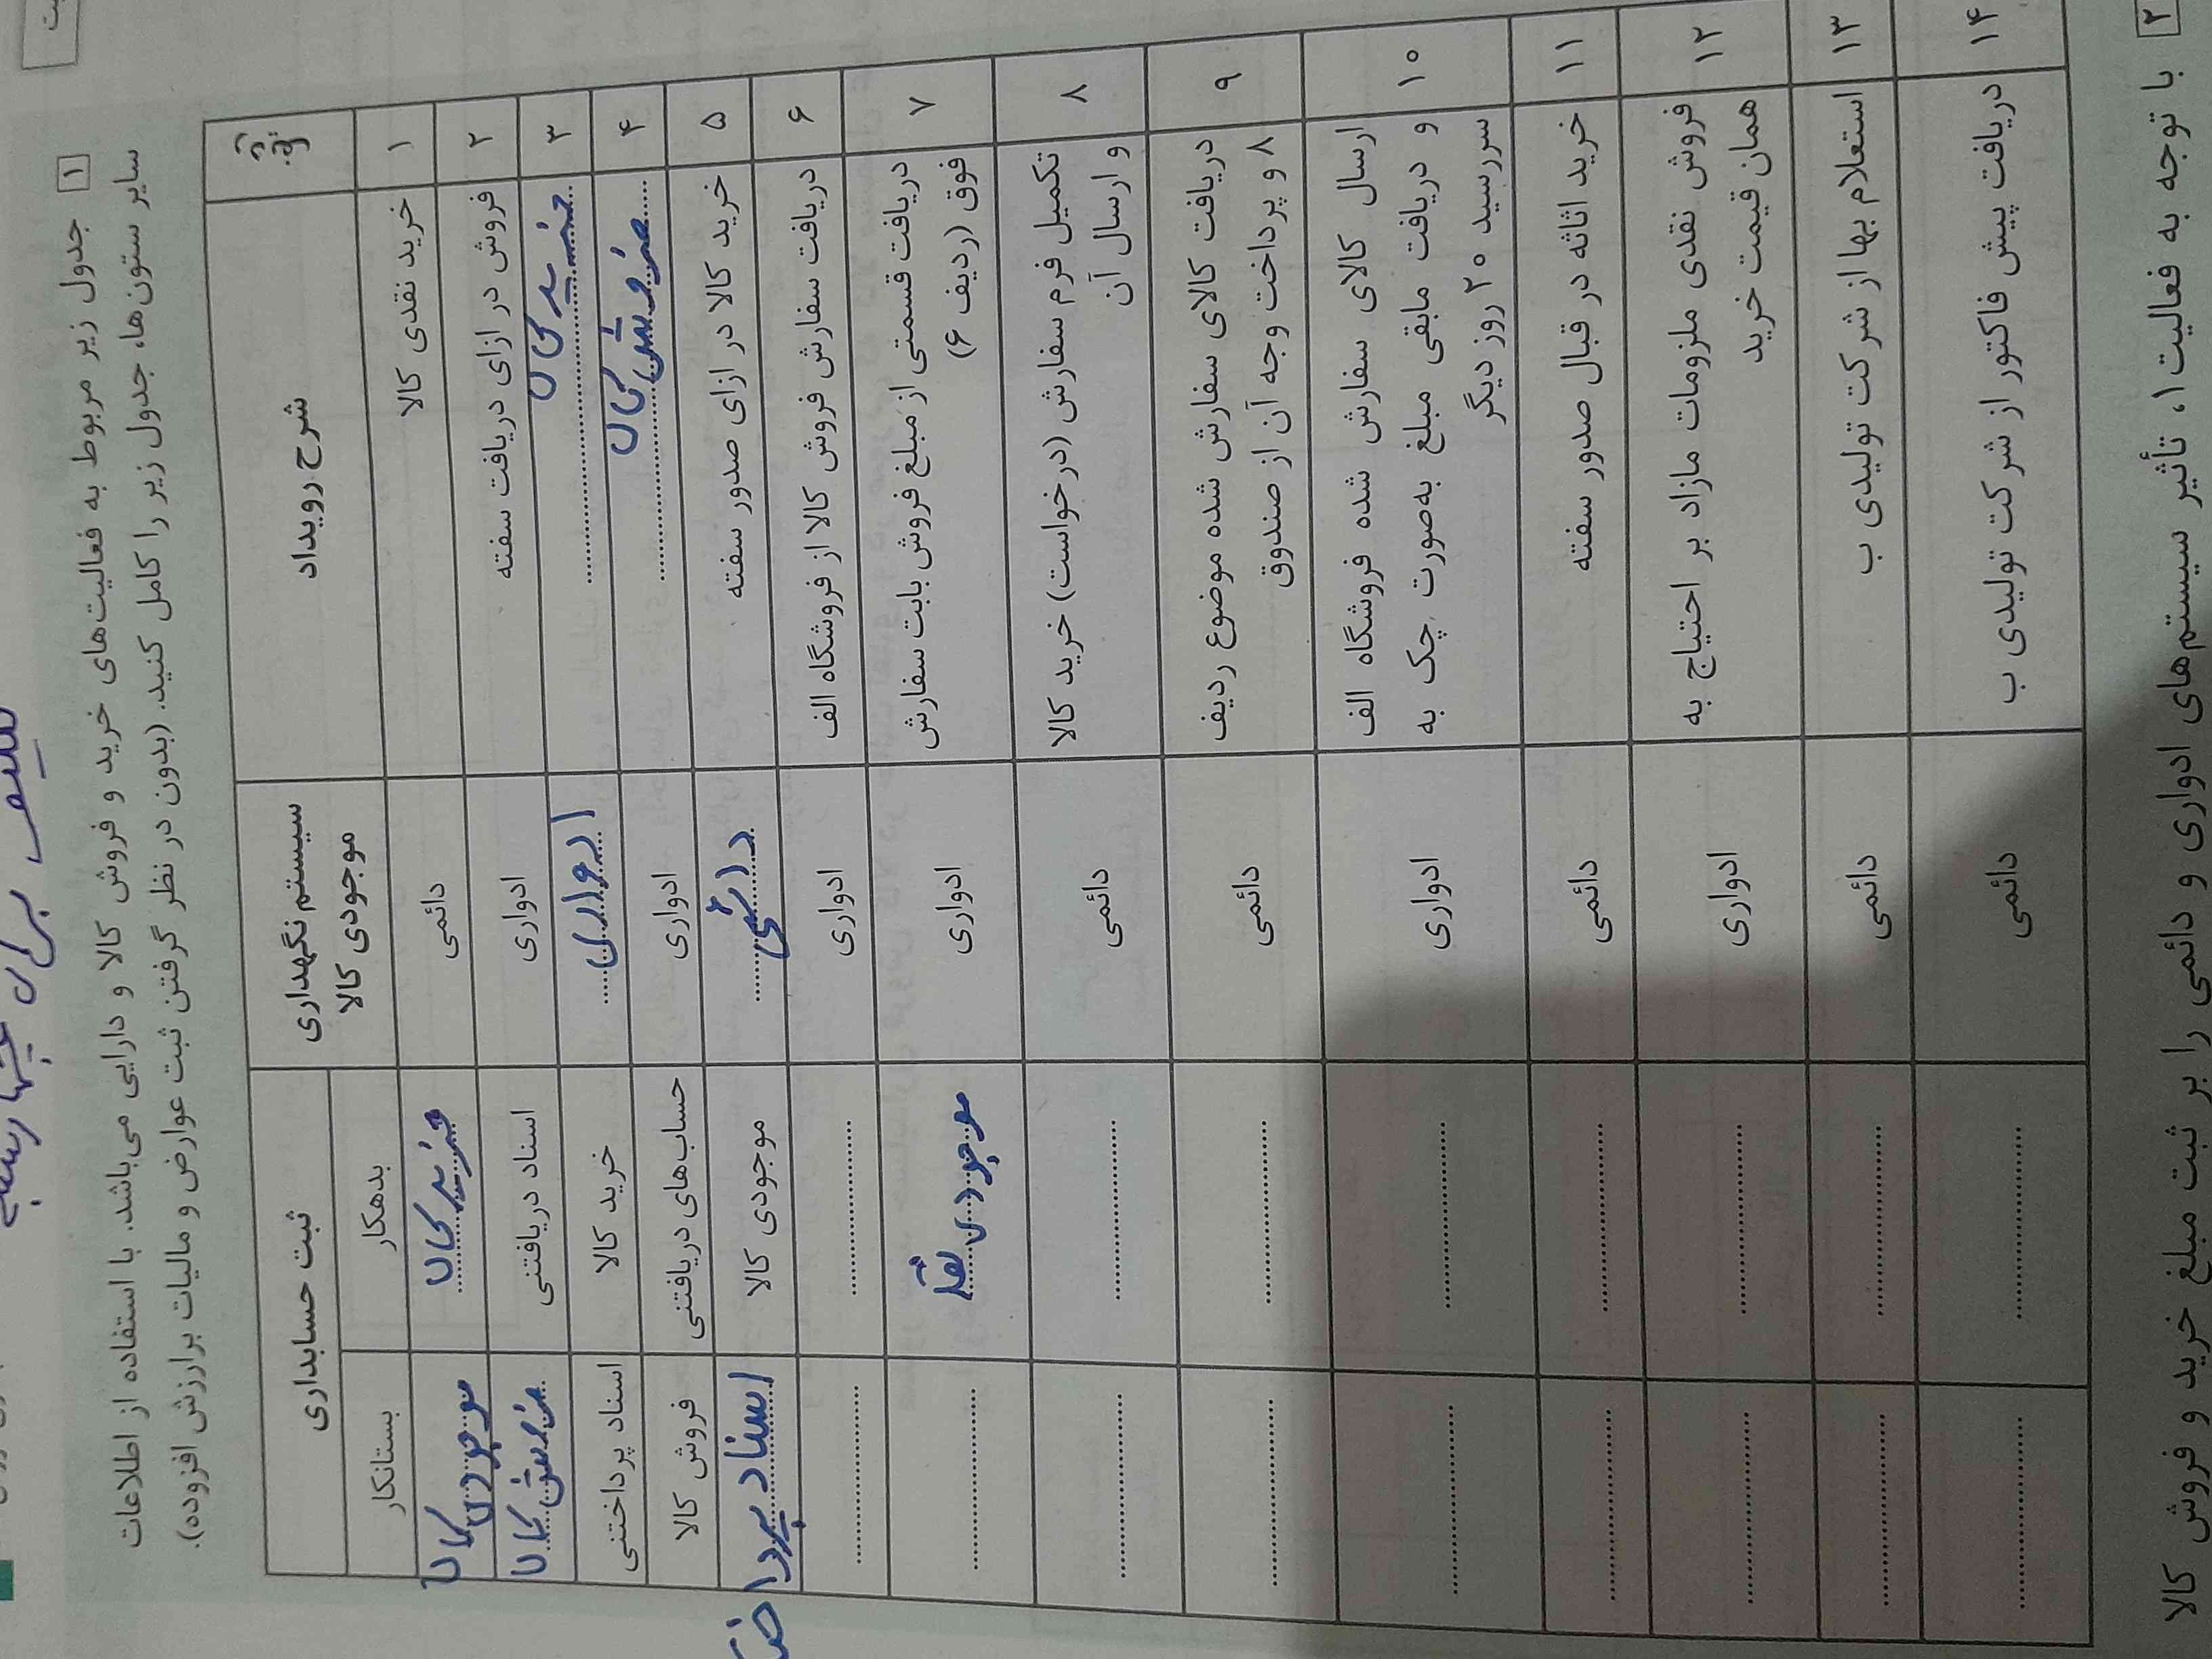 تکلیف برای چهارشنبه
۱ جدول زیر مربوط به فعالیت‌های خرید و فروش کالا و دارایی می‌باشد. با استفاده از اطلاعات
سایر ستون‌ها، جدول زیر را کامل کنید. (بدون در نظر گرفتن ثبت عوارض و مالیات برارزش افزوده).
ردیف شرح رویداد سیستم نگهداری موجودی کالا ثبت حسابداری
بدهکار بستانکار
۱ خرید نقدی کالا دائمی خرید کالا موجودی کالا
۲ فروش در ازای دریافت سفته ادواری اسناد دریافتنی فروش کالا
۳ خرید کالا ادواری خرید کالا اسناد پرداختنی
۴ فروش کالا ادواری حساب‌های دریافتنی فروش کالا
۵ خرید کالا در ازای صدور سفته دائمی موجودی کالا اسناد پرداخ
۶ دریافت سفارش فروش کالا از فروشگاه الف ادواری .................... ....................
۷ دریافت قسمتی از مبلغ فروش بابت سفارش
فوق (ردیف ۶) ادواری موجودی نقد ....................
۸ تکمیل فرم سفارش (درخواست) خرید کالا
و ارسال آن دائمی .................... ....................
۹ دریافت کالای سفارش شده موضوع ردیف
۸ و پرداخت وجه آن از صندوق دائمی .................... ....................
۱۰ ارسال کالای سفارش شده فروشگاه الف
و دریافت مابقی مبلغ به‌صورت چک به
سررسید ۲۰ روز دیگر ادواری .................... ....................
۱۱ خرید اثاثه در قبال صدور سفته دائمی .................... ....................
۱۲ فروش نقدی ملزومات مازاد بر احتیاج به
همان قیمت خرید ادواری .................... ....................
۱۳ استعلام بها از شرکت تولیدی ب دائمی .................... ....................
۱۴ دریافت پیش فاکتور از شرکت تولیدی ب دائمی .................... ....................
۲ با توجه به فعالیت ۱، تأثیر سیستم‌های ادواری و دائمی را بر ثبت مبلغ خرید و فروش کالا